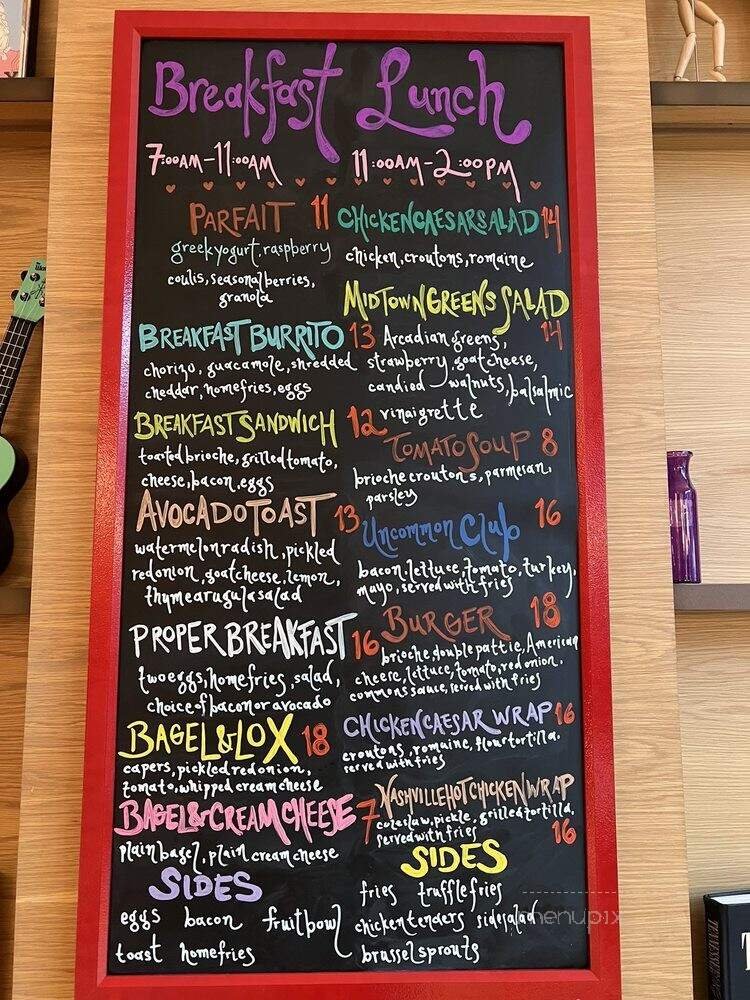 Breakfast
7:00AM-11:00AM
PARFAIT 11
greek yogurt, raspberry
coulis, seasonal berries,
granola
BREAKFAST BURRITO 13
chorizo, guacamole, shredded
cheddar, homefries, eggs
BREAKFAST SANDWICH 12
toasted brioche, grilled tomato,
cheese, bacon, eggs
AVOCADO TOAST 13
watermelon radish, pickled
redonion, goat cheese, lemon,
thyme arugula salad
PROPER BREAKFAST 16
two eggs, homefries, salad,
choice of bacon or avocado
BAGEL & LOX 18
capers, pickled red onion,
tomato, whipped cream cheese
BAGEL & CREAM CHEESE 7
plain bagel, plain cream cheese
SIDES
eggs bacon fruit bowl
toast homefries
Lunch
11:00AM-2:00PM
CHICKEN CAESAR SALAD 14
chicken, croutons, romaine
MIDTOWN GREENS SALAD
14
Arcadian greens,
strawberry, goat cheese,
candied walnuts, balsalmic
vinaigrette
TOMATO SOUP 8
brioche croutons, parmesan,
parsley
Uncommon Club 16
bacon, lettuce, tomato, turkey,
mayo, served with fries
BURGER 18
brioche, double pattie, American
cheese, lettuce, tomato, red onion,
commons sauce, served with fries
CHICKEN CAESAR WRAP 16
croutons, romaine, flour tortilla.
served with fries
NASHVILLE HOT CHICKEN WRAP
coleslaw, pickle, grilled tortilla,
served with fries 16
SIDES
fries truffle fries
chicken tenders side salad
brussel sprouts
menupix